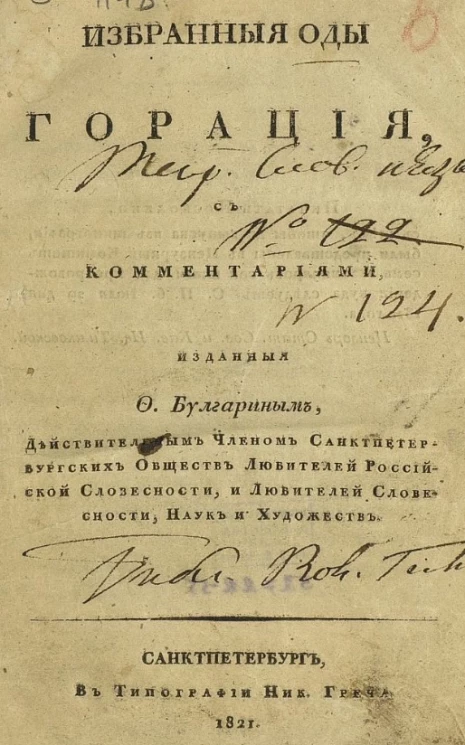 ИЗБРАННЫЯ ОДЫ
ГОРАЦІЯ,
съ
№ 122
КОММЕНТАРІЯМИ,
N 124.
ИЗДАННЫЯ
Ѳ. Булгаринымъ,
Дѣйствительнымъ Членомъ Санктпетер-
бургскихъ Обществъ Любителей Россій-
ской Словесности, и Любителей Слове-
сности, Наукъ и Художествъ.
САНКТПЕТЕРБУРГЪ,
Въ Типографіи Ник. Греча
1821.